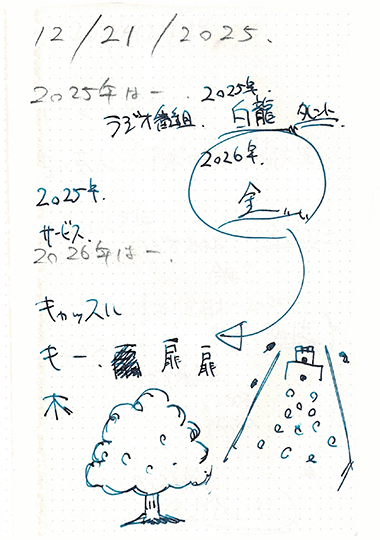 12/21/2025.
2025年は一. 2025年.
ラジオ番組. 白龍 タレント
2026年.
金
2025年.
サービス.
2026年は一.
キャッスル
もー. 扉 扉
木